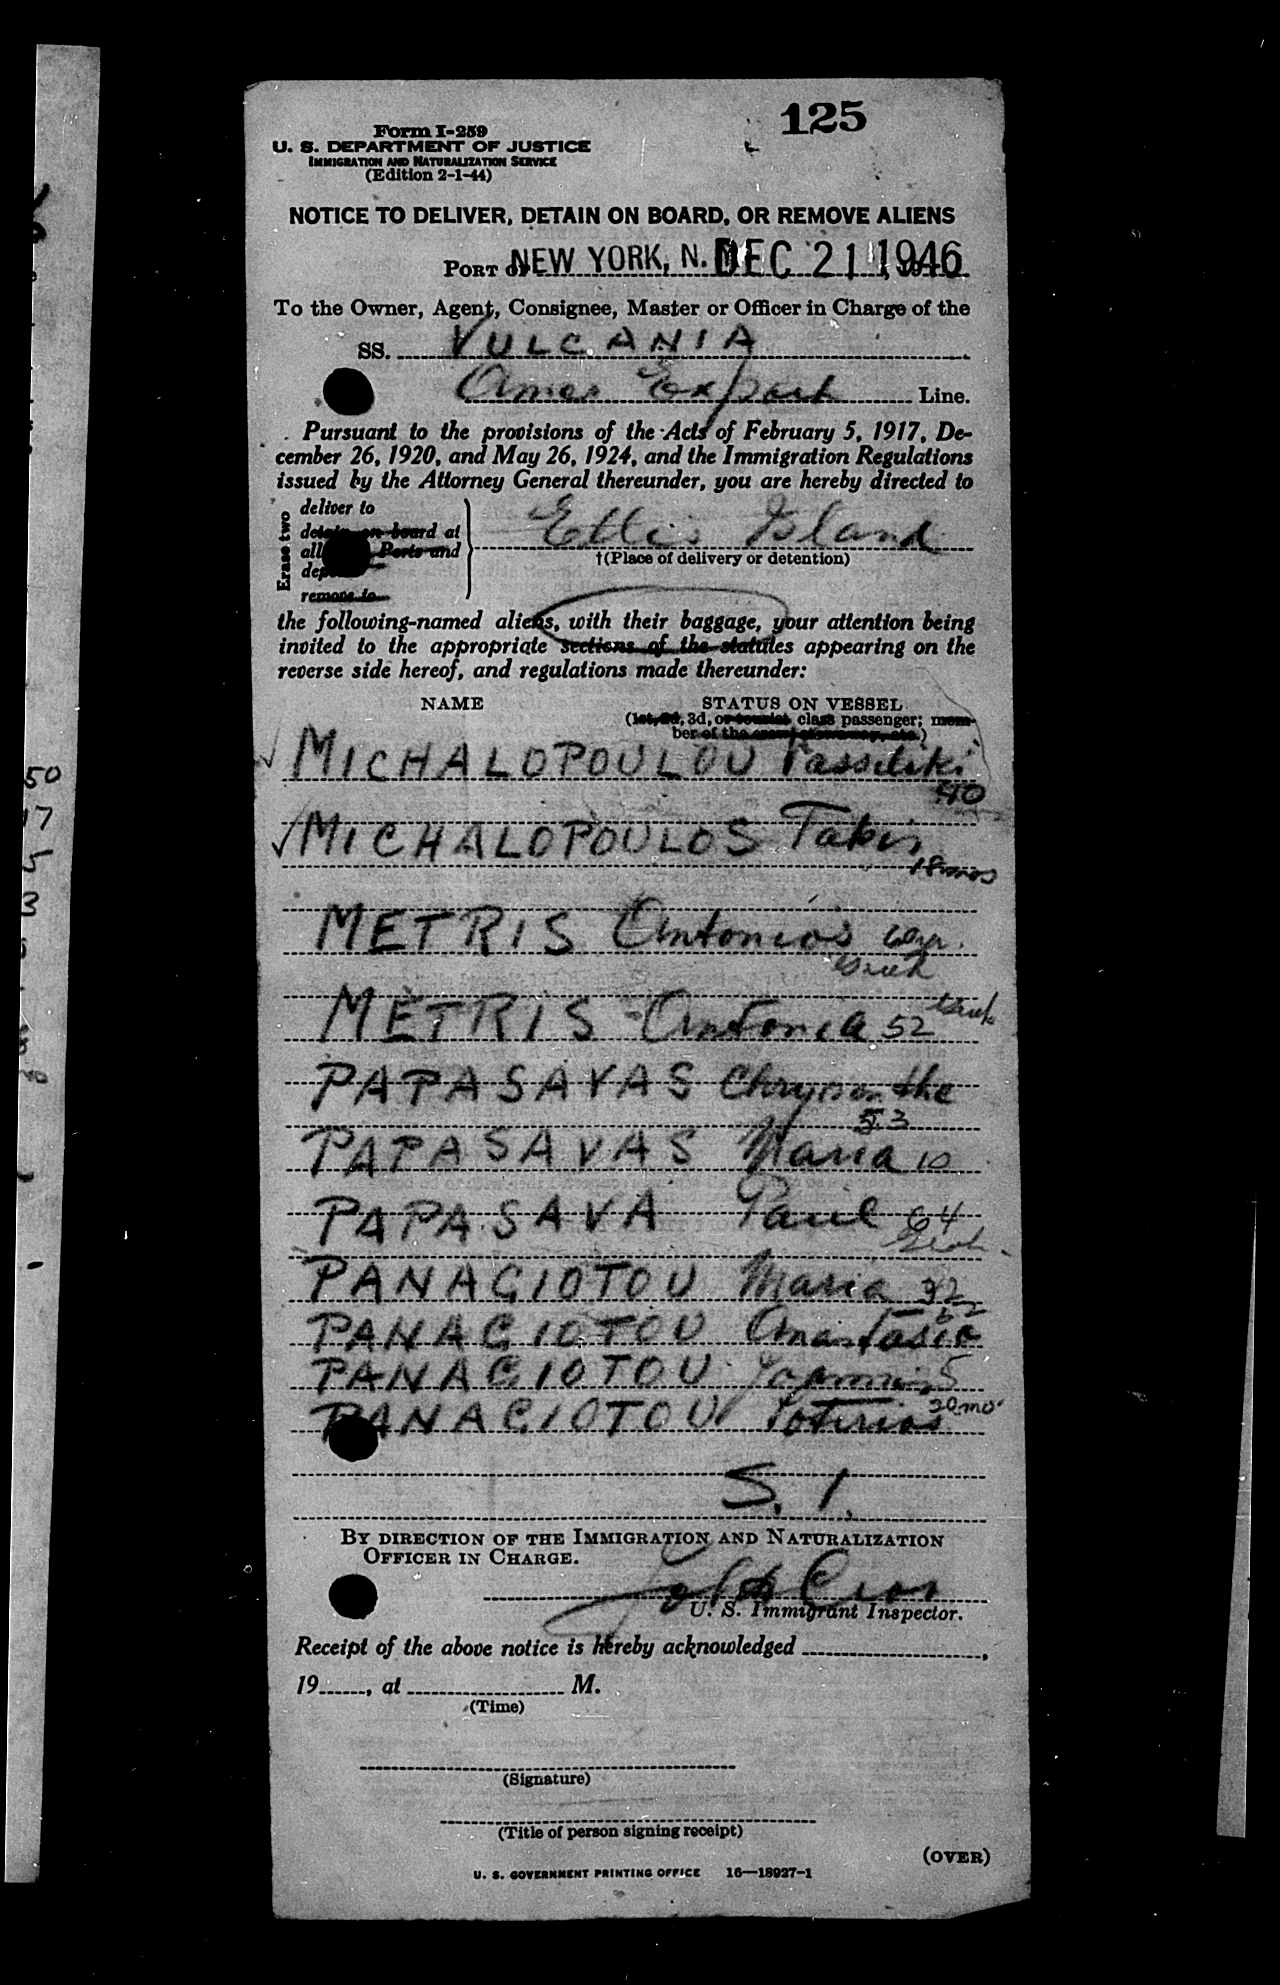 125
Form I-259
U. S. DEPARTMENT OF JUSTICE
IMMIGRATION AND NATURALIZATION SERVICE
(Edition 2-1-44)
NOTICE TO DELIVER, DETAIN ON BOARD, OR REMOVE ALIENS
PORT OF NEW YORK, N. DEC 21 1946
To the Owner, Agent, Consignee, Master or Officer in Charge of the
SS. VULCANIA
Amer Export Line.
Pursuant to the provisions of the Acts of February 5, 1917, De-
cember 26, 1920, and May 26, 1924, and the Immigration Regulations
issued by the Attorney General thereunder, you are hereby directed to
Erase two
deliver to
detain on board at
all Ports and
remove to
Ellis Island
†(Place of delivery or detention)
the following-named aliens, with their baggage, your attention being
invited to the appropriate sections of the statutes appearing on the
reverse side hereof, and regulations made thereunder:
NAME STATUS ON VESSEL
(1st, 2d, 3d, or tourist class passenger; mem-
ber of the
MICHALOPOULOU Vassiliki
40
MICHALOPOULOS Takis
18 mos
METRIS Antonios 60 yr.
Greek
METRIS Antonia 52 Greek
PAPASAVAS Chrysanthe
53
PAPASAVAS Maria 10
PAPASAVA Paul 64
PANAGIOTOU Maria 32
PANAGIOTOU Anastasia
PANAGIOTOU 5
PANAGIOTOU Sotirios 20 mo
S. I.
BY DIRECTION OF THE IMMIGRATION AND NATURALIZATION
OFFICER IN CHARGE.
U. S. Immigrant Inspector.
Receipt of the above notice is hereby acknowledged
19, at M.
(Time)
(Signature)
(Title of person signing receipt)
(OVER)
U. S. GOVERNMENT PRINTING OFFICE 16—18927-1
50
17
5
3